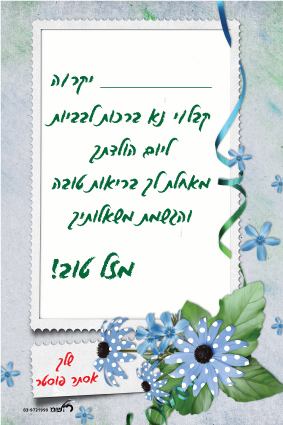 יקר/ה ______________
קבל/י נא ברכות לבביות
ליום הולדתך
מאחלת לך בריאות טובה
והגשמת משאלותיך
מזל טוב!
שלך
אסתר פוסטר
03-9721999